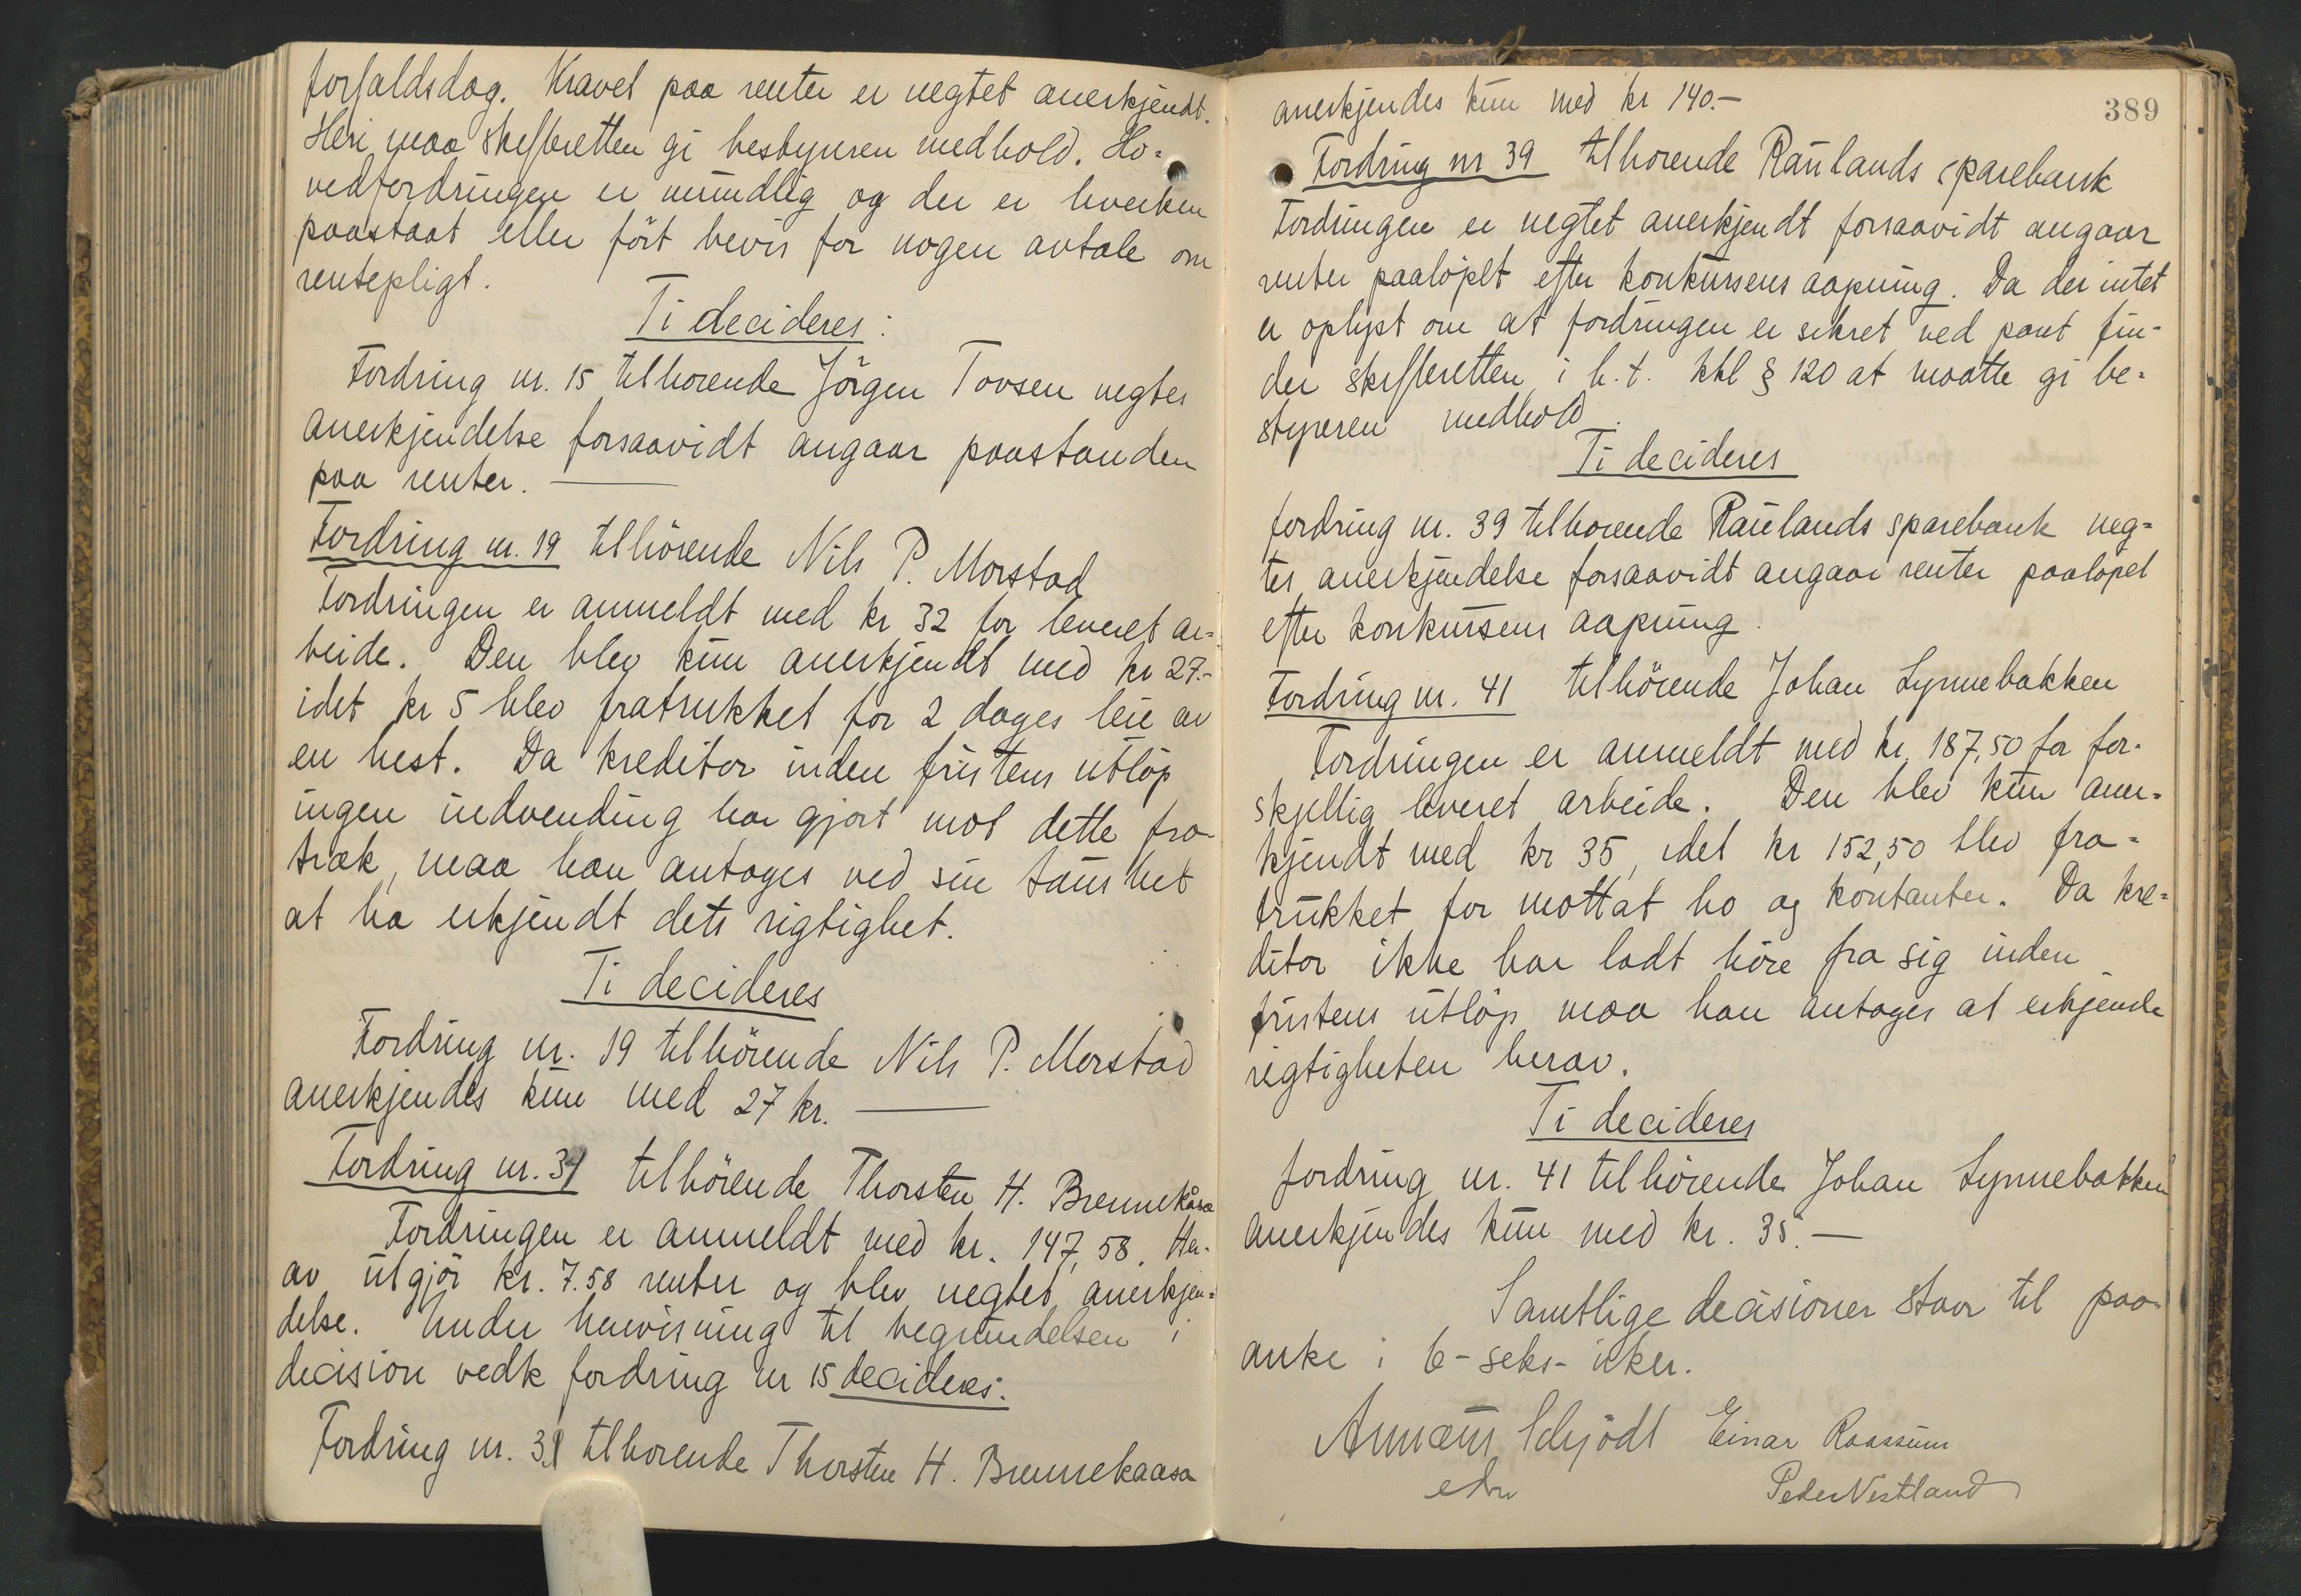 forfaldsdag. Kravet paa renter er negtet anerkjendt.
Heri maa skifteretten gi bestyreren medhold. Ho-
vedfordringen er mundlig og der er hverken
paastaat eller fört bevis for nogen avtale om
rentepligt.
Ti decideres:
Fordring nr. 15 tilhorende Jörgen Tovsen negtes
anerkjendelse forsaavidt angaar paastanden
paa renter.
Fordring nr. 19 tilhörende Nils P. Morstad
Fordringen er anmeldt med kr 32 for leveret ar-
beide. Den blev kun anerkjendt med kr 27.-
idet kr 5 blev fratrukket for 2 dages leie av
en hest. Da kreditor inden fristens utlöp
ingen indvending har gjort mot dette fra-
træk, maa han antages ved sin taushet
at ha erkjendt dets rigtighet.
Ti decideres
Fordring nr. 19 tilhörende Nils P. Morstad
anerkjendes kun med 27 kr.
Fordring nr. 31 tilhörende Thorsten H. Brennekåsa
Fordringen er anmeldt med kr. 147,58. Her-
av utgjör kr. 7.58 renter og blev negtet anerkjen-
delse. Under henvisning til begrundelsen i
decision vedk fordring nr 15 decideres:
Fordring nr. 31 tilhorende Thorsten H. Brennekaasa
389
anerkjendes kun med kr 140.-
Fordring nr 39 tilhorende Raulands sparebank
Fordringen er negtet anerkjendt forsaavidt angaar
renter paalöpet efter konkursens aapning. Da der intet
er oplyst om at fordringen er sikret ved pant fin-
der skifteretten i h.t. kkl § 120 at maatte gi be-
styreren medhold.
Ti decideres
fordring nr. 39 tilhorende Raulands sparebank neg-
tes anerkjendelse forsaavidt angaar renter paalöpet
efter konkursens aapning.
Fordring nr. 41 tilhörende Johan Synnebakken
Fordringen er anmeldt med kr. 187,50 for for-
skjellig leveret arbeide. Den blev kun aner-
kjendt med kr 35, idet kr 152,50 blev fra-
trukket for mottat ho og kontanter. Da kre-
ditor ikke har ladt höre fra sig inden
fristens utlöp maa han antages at erkjende
rigtigheten herav.
Ti decideres
fordring nr. 41 tilhörende Johan Synnebakken
anerkjendes kun med kr. 35.-
Samtlige decisioner staar til paa-
anke i 6- seks- uker.
Annæus Schjödt Einar Raassum
edm Peder Vestland